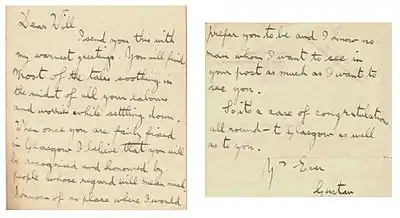 Dear Will
I send you this with
my warmest greetings. You will find
most of the tales soothing in
the midst of all your labours
and worries while settling down.
When once you are fairly fixed
in Glasgow I believe that you will
be recognised and honoured by
people whose regard will mean much.
I know of no place where I would
prefer you to be and I know no
man whom I want to see in
your post as much as I want to
see you.
So its a case of congratulation
all round — to Glasgow as well
as to you.
Ever
Gustav